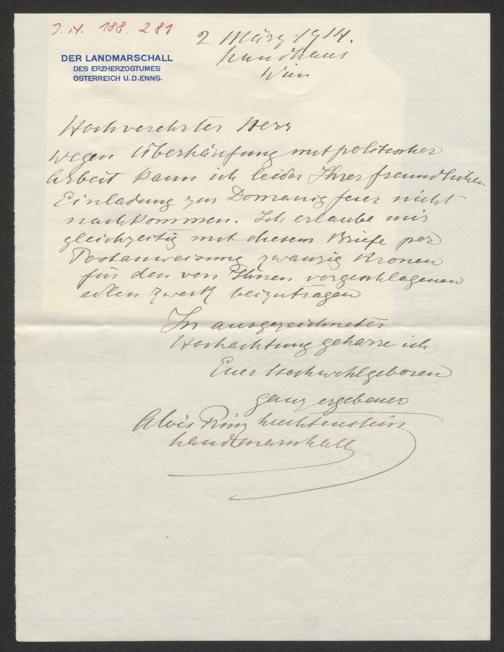 J. N. 188.281
DER LANDMARSCHALL
DES ERZHERZOGTUMES
ÖSTERREICH U. D. ENNS.
2 März 1914.
Landhaus
Wien
Hochverehrter Herr
Wegen Überhäufung mit politischer
Arbeit kann ich leider Ihrer freundlichen
Einladung zur Domanig feier nicht
nachkommen. Ich erlaube mir
gleichzeitig mit diesem Briefe per
Postanweisung zwanzig Kronen
für den von Ihnen vorgeschlagenen
edlen Zweck beizutragen
In ausgezeichneter
Hochachtung geharre ich
Euer Hochwohlgeboren
ganz ergebener
Alois Prinz Liechtenstein
Landmarschall